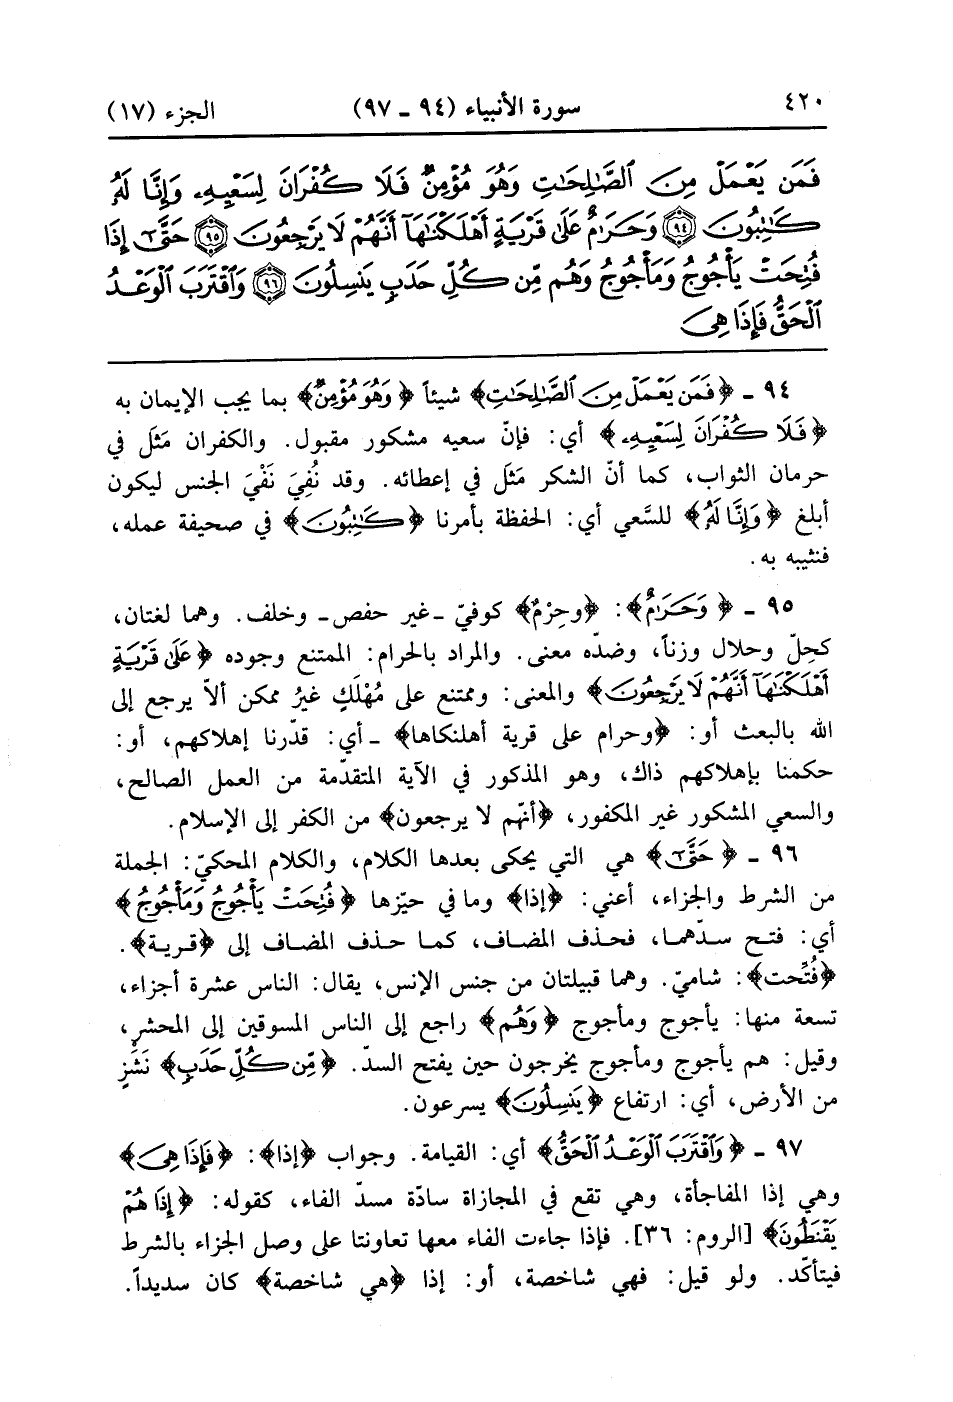 ٤٢٠ سورة الأنبياء (٩٤ ـ ٩٧) الجزء (١٧)
فَمَن يَعْمَلْ مِنَ ٱلصَّٰلِحَٰتِ وَهُوَ مُؤْمِنٌ فَلَا كُفْرَانَ لِسَعْيِهِۦ وَإِنَّا لَهُۥ
كَٰتِبُونَ ﴿٩٤﴾ وَحَرَٰمٌ عَلَىٰ قَرْيَةٍ أَهْلَكْنَٰهَآ أَنَّهُمْ لَا يَرْجِعُونَ ﴿٩٥﴾ حَتَّىٰٓ إِذَا
فُتِحَتْ يَأْجُوجُ وَمَأْجُوجُ وَهُم مِّن كُلِّ حَدَبٍ يَنسِلُونَ ﴿٩٦﴾ وَٱقْتَرَبَ ٱلْوَعْدُ
ٱلْحَقُّ فَإِذَا هِىَ
٩٤ ـ ﴿فَمَن يَعْمَلْ مِنَ ٱلصَّٰلِحَٰتِ﴾ شيئاً ﴿وَهُوَ مُؤْمِنٌ﴾ بما يجب الإيمان به
﴿فَلَا كُفْرَانَ لِسَعْيِهِۦ﴾ أي: فإنّ سعيه مشكور مقبول. والكفران مَثَل في
حرمان الثواب، كما أنّ الشكر مَثَل في إعطائه. وقد نُفِيَ نَفْيَ الجنس ليكون
أبلغ ﴿وَإِنَّا لَهُۥ﴾ للسَّعي أي: الحفظة بأمرنا ﴿كَٰتِبُونَ﴾ في صحيفة عمله،
فنثيبه به.
٩٥ ـ ﴿وَحَرَٰمٌ﴾: ﴿وحِرْمٌ﴾ كوفيّ ـ غير حفص ـ وخلف. وهما لغتان،
كحِلّ وحلال وزناً، وضدّه معنى. والمراد بالحرام: الممتنع وجوده ﴿عَلَىٰ قَرْيَةٍ
أَهْلَكْنَٰهَآ أَنَّهُمْ لَا يَرْجِعُونَ﴾ والمعنى: وممتنع على مُهْلَكٍ غيرُ ممكن ألاّ يرجع إلى
الله بالبعث أو: ﴿وحرام على قرية أهلنكاها﴾ ـ أي: قدّرنا إهلاكهم، أو:
حكمنا بإهلاكهم ذاك، وهو المذكور في الآية المتقدّمة من العمل الصالح،
والسعي المشكور غير المكفور، ﴿أنّهم لا يرجعون﴾ من الكفر إلى الإسلام.
٩٦ ـ ﴿حَتَّىٰٓ﴾ هي التي يحكى بعدها الكلام، والكلام المحكيّ: الجملة
من الشرط والجزاء، أعني: ﴿إذا﴾ وما في حيّزها ﴿فُتِحَتْ يَأْجُوجُ وَمَأْجُوجُ﴾
أي: فتح سدّهما، فحذف المضاف، كما حذف المضاف إلى ﴿قرية﴾.
﴿فُتِّحت﴾: شاميّ. وهما قبيلتان من جنس الإنس، يقال: الناس عشرة أجزاء،
تسعة منها: يأجوج ومأجوج ﴿وَهُم﴾ راجع إلى الناس المسوقين إلى المحشر،
وقيل: هم يأجوج ومأجوج يخرجون حين يفتح السدّ. ﴿مِّن كُلِّ حَدَبٍ﴾ نَشَزٍ
من الأرض، أي: ارتفاع ﴿يَنسِلُونَ﴾ يسرعون.
٩٧ ـ ﴿وَٱقْتَرَبَ ٱلْوَعْدُ ٱلْحَقُّ﴾ أي: القيامة. وجواب ﴿إذا﴾: ﴿فَإِذَا هِىَ﴾
وهي إذا المفاجأة، وهي تقع في المجازاة سادّة مسدّ الفاء، كقوله: ﴿إِذَا هُمْ
يَقْنَطُونَ﴾ [الروم: ٣٦]. فإذا جاءت الفاء معها تعاونتا على وصل الجزاء بالشرط
فيتأكّد. ولو قيل: فهي شاخصة، أو: إذا ﴿هي شاخصة﴾ كان سديداً.